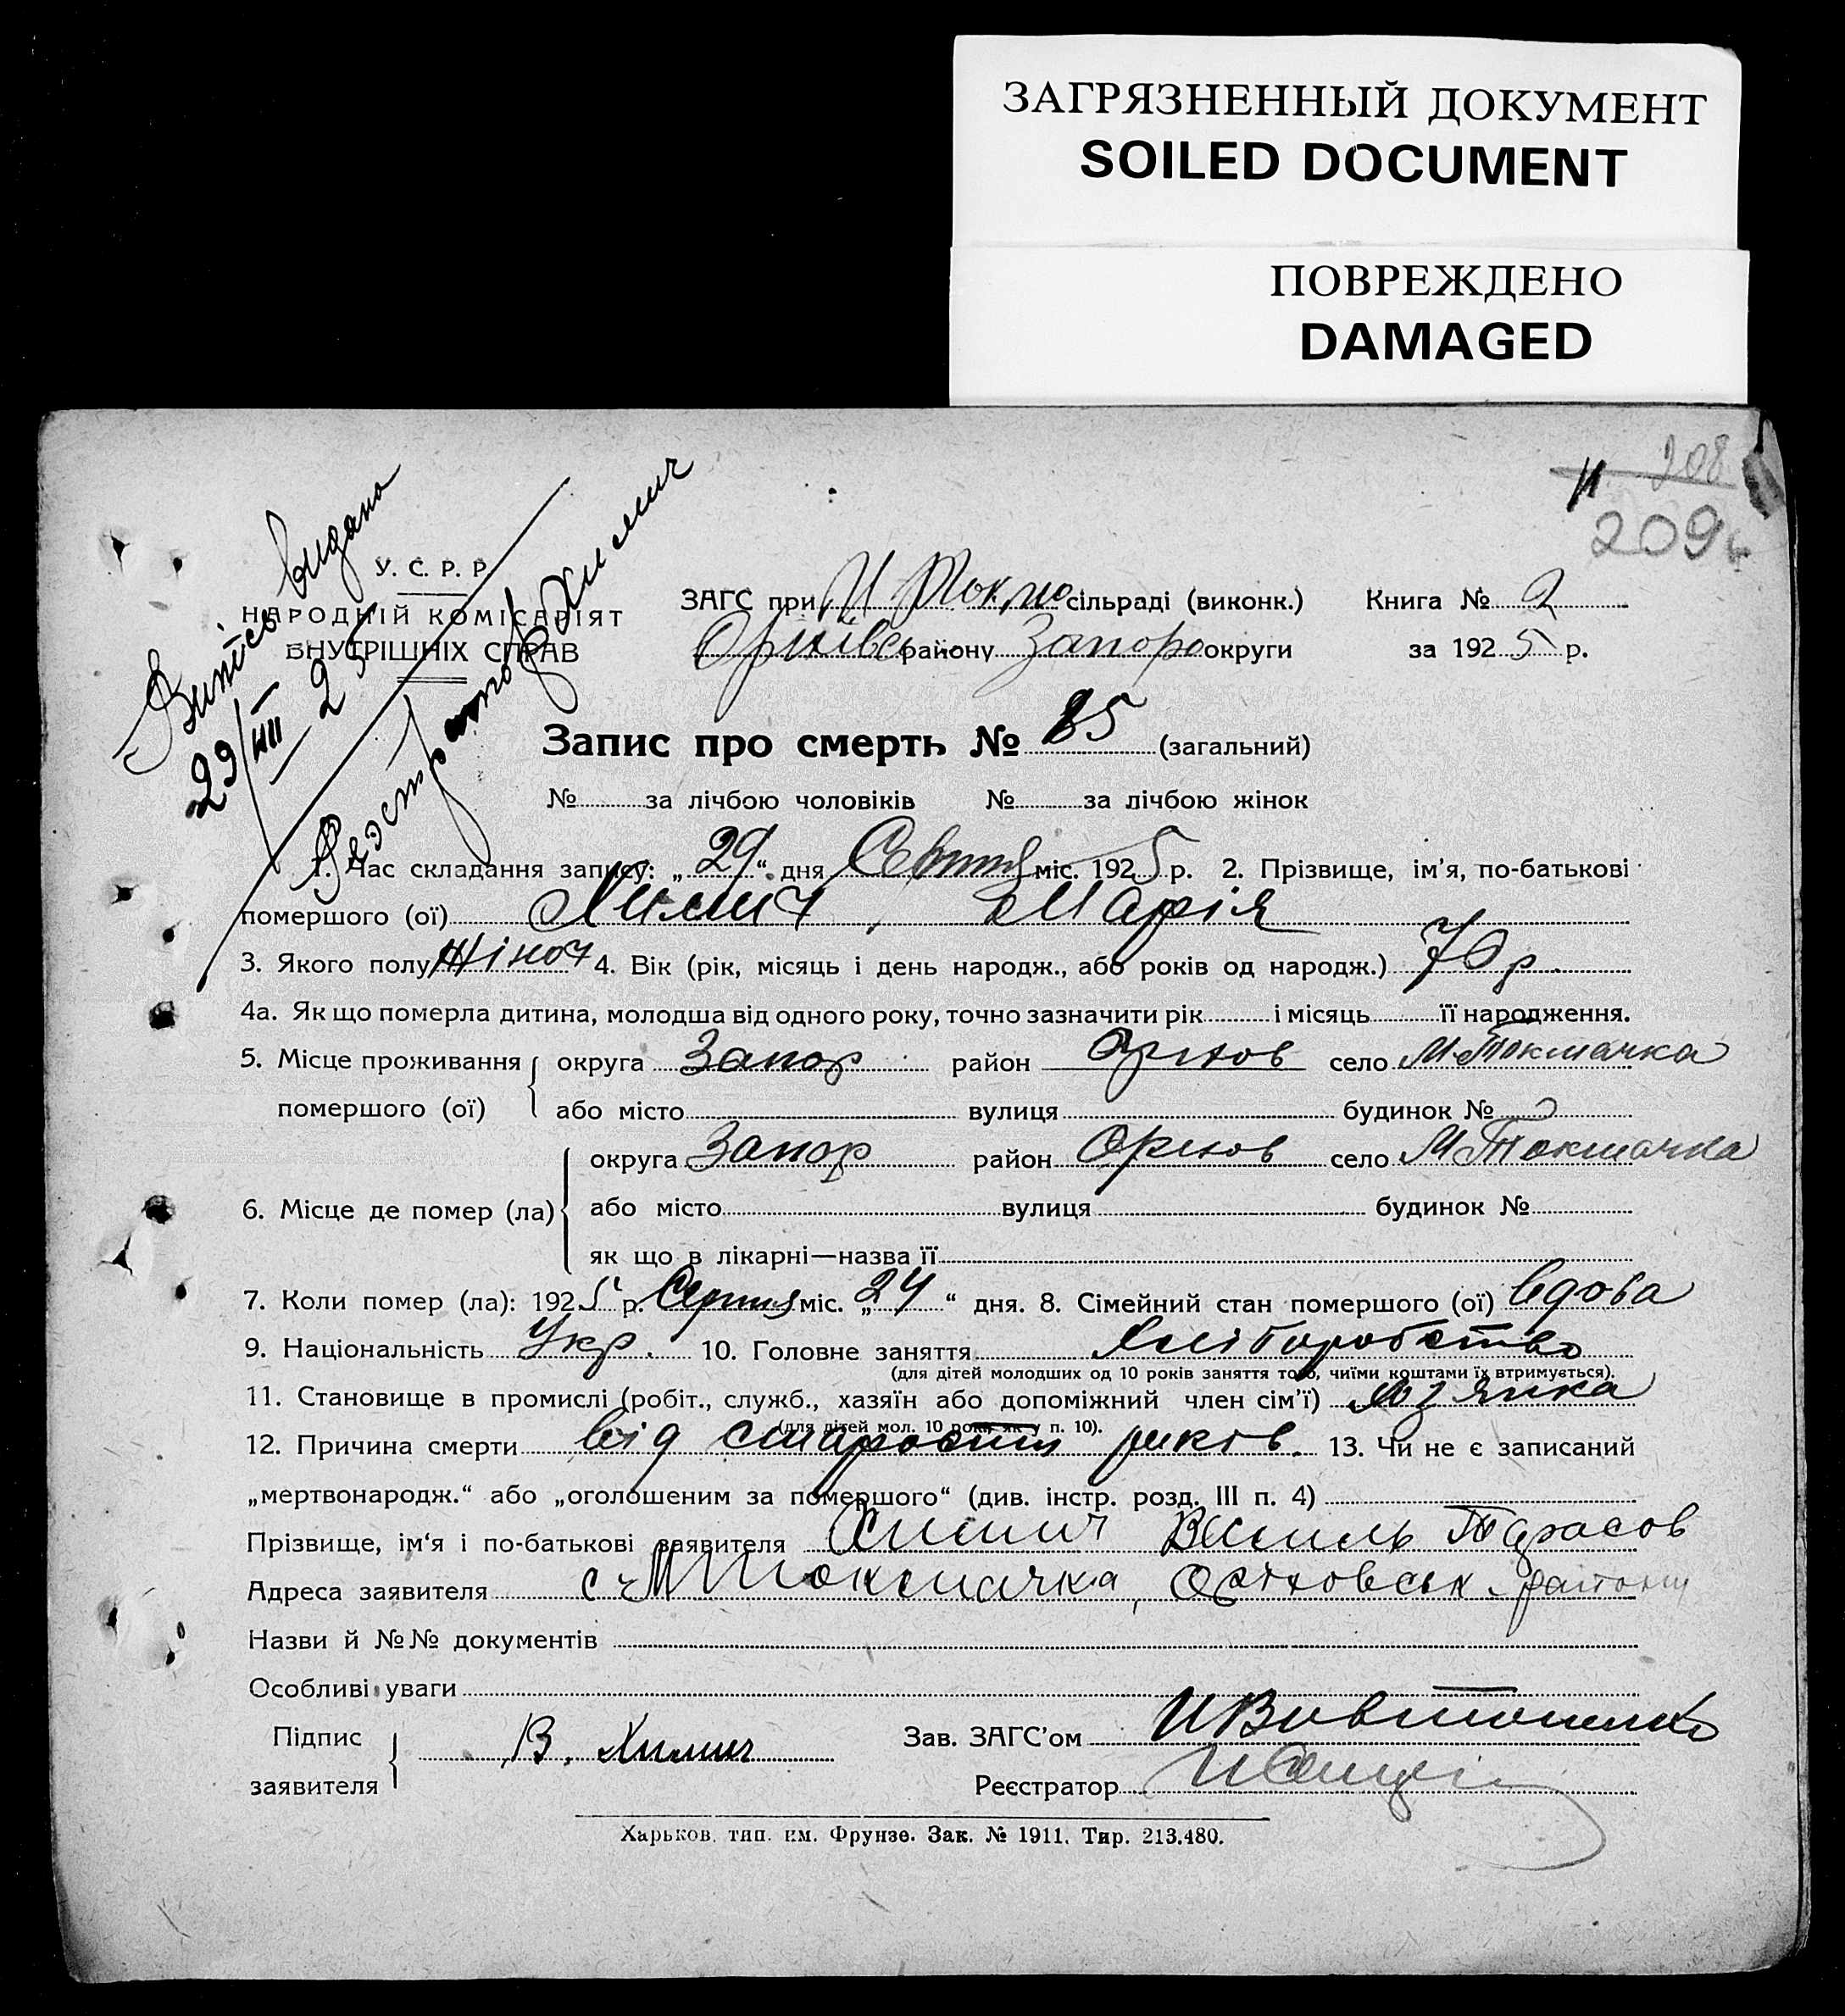 ЗАГРЯЗНЕННЫЙ ДОКУМЕНТ
SOILED DOCUMENT
ПОВРЕЖДЕНО
DAMAGED
208
209
Витісь видана
29/VIII 25
Химич
У. С. Р. Р.
НАРОДНІЙ КОМІСАРІЯТ
ВНУТРІШНІХ СПРАВ
ЗАГС при М Токмо сільраді (виконк.) Книга № 2
Оріхівс району Запоро округи за 1925 р.
Запис про смерть № 85 (загальний)
№ за лічбою чоловіків № за лічбою жінок
1. Час складання запису: „29“ дня міс. 1925 р. 2. Прізвище, ім'я, по-батькові
помершого (ої) Химич, Марія
3. Якого полу Жіноч 4. Вік (рік, місяць і день народж., або років од народж.) 70 р.
4а. Як що померла дитина, молодша від одного року, точно зазначити рік і місяць її народження.
5. Місце проживання помершого (ої) округа Запор район Оріхов село М-Токмачка
або місто вулиця будинок №
6. Місце де помер (ла) округа Запор район Оріхов село М Токмачка
або місто вулиця будинок №
як що в лікарні—назва її
7. Коли помер (ла): 1925 р. Серпня міс. „24“ дня. 8. Сімейний стан помершого (ої) вдова
9. Національність Укр. 10. Головне заняття Хліборобство
(для дітей молодших од 10 років заняття того, чиїми коштами їх втримується).
11. Становище в промислі (робіт., служб., хазяїн або допоміжний член сім'ї) хозяйка
(для дітей мол. 10 рокі, як у п. 10).
12. Причина смерти від старости років. 13. Чи не є записаний
„мертвонародж.“ або „оголошеним за помершого“ (див. інстр. розд. III п. 4)
Прізвище, ім'я і по-батькові заявителя Химич Василь Тарасов
Адреса заявителя с. М Токмачка, Оріховськ. району
Назви й №№ документів
Особливі уваги
Підпис заявителя В. Химич Зав. ЗАГС'ом
Реєстратор
Харьков, тип. им. Фрунзе. Зак. № 1911. Тир. 213.480.